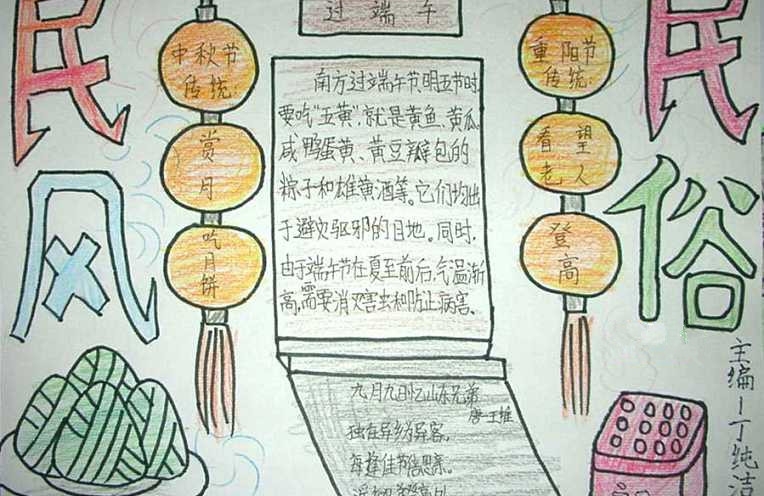 民风
民俗
过端午
中秋节
传统:
赏月
吃月饼
重阳节
传统:
看望
老人
登高
南方过端午节,明五节时,
要吃"五黄",就是黄鱼、黄瓜、
咸鸭蛋黄、黄豆瓣包的
粽子和雄黄酒等。它们均出
于避灾驱邪的目地。同时,
由于端午节在夏至前后,气温渐
高,需要消灭害虫和防止病害。
九月九日忆山东兄弟
唐·王维
独在异乡异客,
每逢佳节倍思亲。
主编-丁纯洁